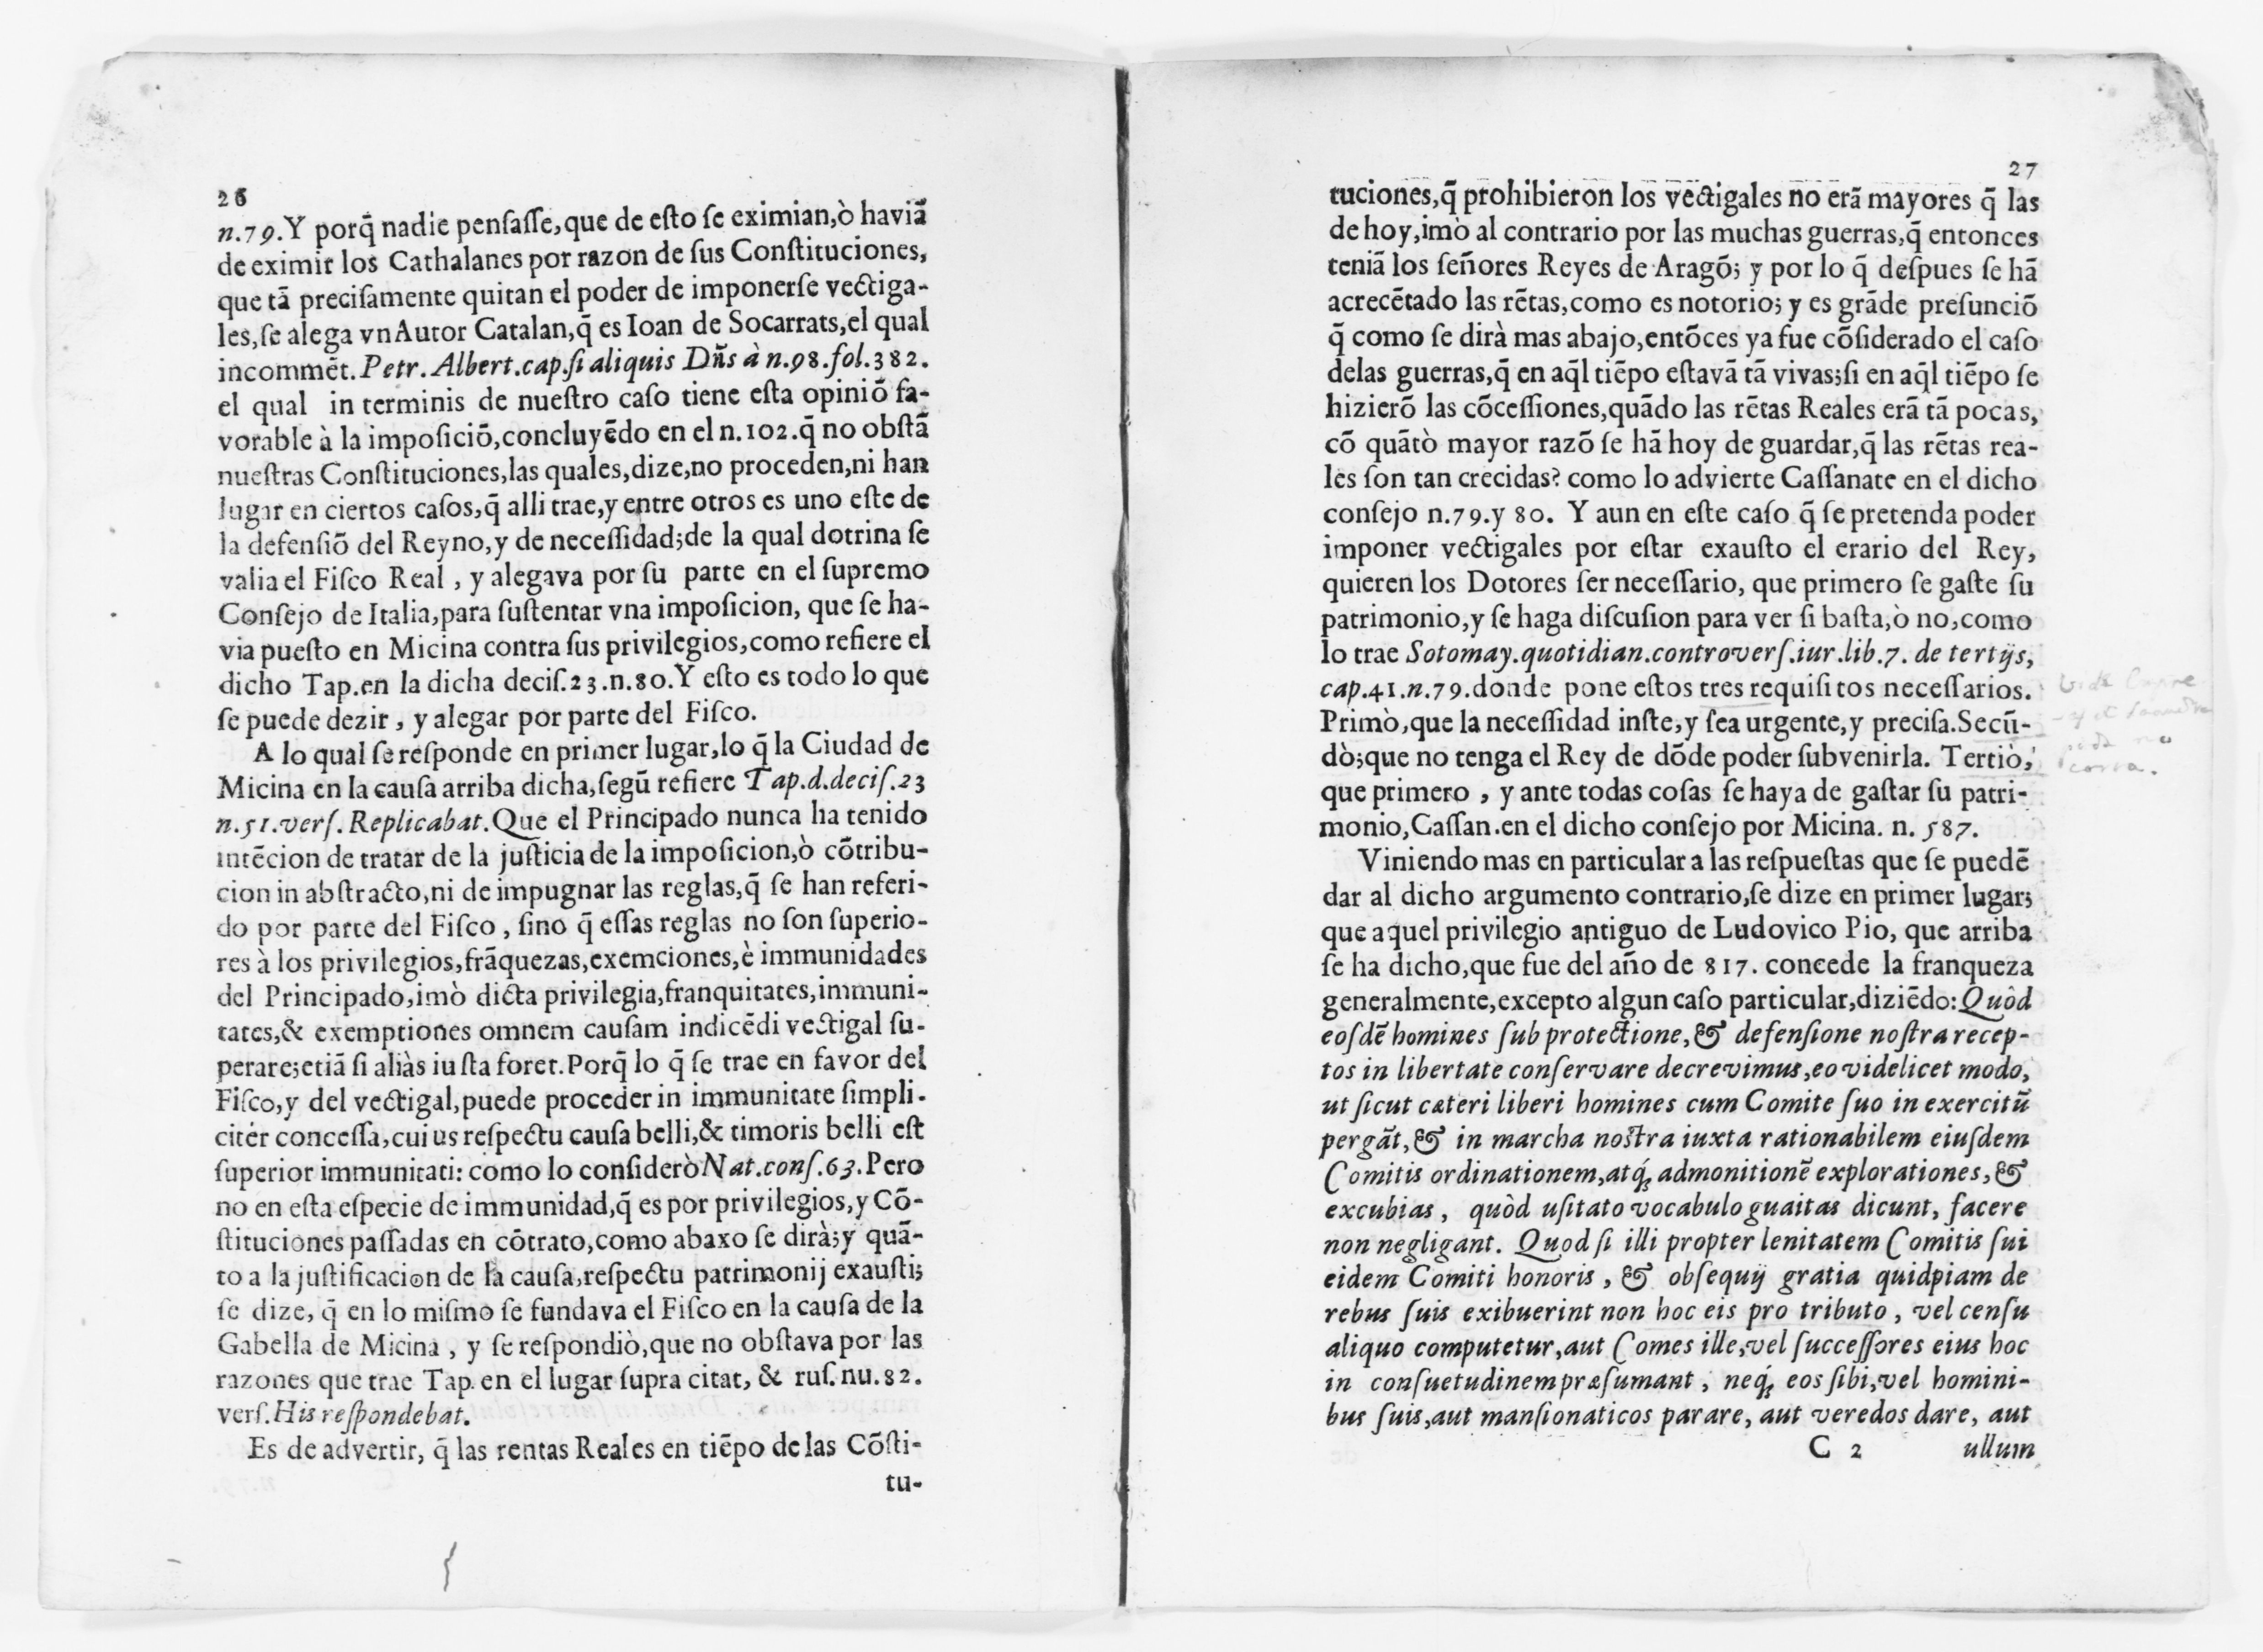 26
n.79.Y porq̃ nadie penſaſſe,que de eſto ſe eximian,ò haviã
de eximir los Cathalanes por razon de ſus Conſtituciones,
que tã preciſamente quitan el poder de imponerſe vectiga-
les,ſe alega vn Autor Catalan,q̃ es Ioan de Socarrats,el qual
incommẽt. Petr. Albert.cap.ſi aliquis Dñs à n.98.fol.382.
el qual in terminis de nueſtro caſo tiene eſta opiniõ fa-
vorable à la impoſiciõ,concluyẽdo en el n.102.q̃ no obſtã
nueſtras Conſtituciones,las quales,dize,no proceden,ni han
lugar en ciertos caſos,q̃ alli trae,y entre otros es uno eſte de
la defenſiõ del Reyno,y de neceſſidad;de la qual dotrina ſe
valia el Fiſco Real , y alegava por ſu parte en el ſupremo
Conſejo de Italia,para ſuſtentar vna impoſicion, que ſe ha-
via pueſto en Micina contra ſus privilegios,como refiere el
dicho Tap.en la dicha deciſ.23.n.80.Y eſto es todo lo que
ſe puede dezir , y alegar por parte del Fiſco.
A lo qual ſe reſponde en primer lugar,lo q̃ la Ciudad de
Micina en la cauſa arriba dicha,ſegũ refiere Tap.d.deciſ.23
n.51.verſ. Replicabat.Que el Principado nunca ha tenido
intẽcion de tratar de la juſticia de la impoſicion,ò cõtribu-
cion in abſtracto,ni de impugnar las reglas,q̃ ſe han referi-
do por parte del Fiſco , ſino q̃ eſſas reglas no ſon ſuperio-
res à los privilegios,frãquezas,exemciones,è immunidades
del Principado,imò dicta privilegia,franquitates,immuni-
tates,& exemptiones omnem cauſam indicẽdi vectigal ſu-
perare;etiã ſi aliàs iuſta foret.Porq̃ lo q̃ ſe trae en favor del
Fiſco,y del vectigal,puede proceder in immunitate ſimpli-
citèr conceſſa,cuius reſpectu cauſa belli,& timoris belli eſt
ſuperior immunitati: como lo conſiderò Nat.conſ.63.Pero
no en eſta eſpecie de immunidad,q̃ es por privilegios,y Cõ-
ſtituciones paſſadas en cõtrato,como abaxo ſe dirà;y quã-
to a la juſtificacion de la cauſa,reſpectu patrimonij exauſti;
ſe dize, q̃ en lo miſmo ſe fundava el Fiſco en la cauſa de la
Gabella de Micina , y ſe reſpondiò,que no obſtava por las
razones que trae Tap. en el lugar ſupra citat, & ruſ. nu.82.
verſ.His reſpondebat.
Es de advertir, q̃ las rentas Reales en tiẽpo de las Cõſti-
tu-
27
tuciones,q̃ prohibieron los vectigales no erã mayores q̃ las
de hoy,imò al contrario por las muchas guerras,q̃ entonces
teniã los ſeñores Reyes de Aragõ; y por lo q̃ deſpues ſe hã
acrecẽtado las rẽtas,como es notorio; y es grãde preſunciõ
q̃ como ſe dirà mas abajo,entõces ya fue cõſiderado el caſo
delas guerras,q̃ en aq̃l tiẽpo eſtavã tã vivas;ſi en aq̃l tiẽpo ſe
hizierõ las cõceſſiones,quãdo las rẽtas Reales erã tã pocas,
cõ quãtò mayor razõ ſe hã hoy de guardar,q̃ las rẽtas rea-
les ſon tan crecidas? como lo advierte Caſſanate en el dicho
conſejo n.79.y 80. Y aun en eſte caſo q̃ ſe pretenda poder
imponer vectigales por eſtar exauſto el erario del Rey,
quieren los Dotores ſer neceſſario, que primero ſe gaſte ſu
patrimonio,y ſe haga diſcuſion para ver ſi baſta,ò no,como
lo trae Sotomay.quotidian.controverſ.iur.lib.7. de tertijs,
cap.41.n.79.donde pone eſtos tres requiſitos neceſſarios.
Primò,que la neceſſidad inſte,y ſea urgente,y preciſa.Secũ-
dò;que no tenga el Rey de dõde poder ſubvenirla. Tertiò,
que primero , y ante todas coſas ſe haya de gaſtar ſu patri-
monio,Caſſan.en el dicho conſejo por Micina. n. 587.
Viniendo mas en particular a las reſpueſtas que ſe puedẽ
dar al dicho argumento contrario,ſe dize en primer lugar;
que aquel privilegio antiguo de Ludovico Pio, que arriba
ſe ha dicho,que fue del año de 817. concede la franqueza
generalmente,excepto algun caſo particular,diziẽdo: Quòd
eoſdẽ homines ſub protectione,& defenſione noſtra recep-
tos in libertate conſervare decrevimus,eo videlicet modo,
ut ſicut cæteri liberi homines cum Comite ſuo in exercitũ
pergãt,& in marcha noſtra iuxta rationabilem eiuſdem
Comitis ordinationem,atq́; admonitionẽ explorationes,&
excubias , quòd uſitato vocabulo guaitas dicunt, facere
non negligant. Quod ſi illi propter lenitatem Comitis ſui
eidem Comiti honoris , & obſequij gratia quidpiam de
rebus ſuis exibuerint non hoc eis pro tributo , vel cenſu
aliquo computetur,aut Comes ille,vel ſucceſſores eius hoc
in conſuetudinem præſumant , neq́; eos ſibi,vel homini-
bus ſuis,aut manſionaticos parare, aut veredos dare, aut
C 2 ullum